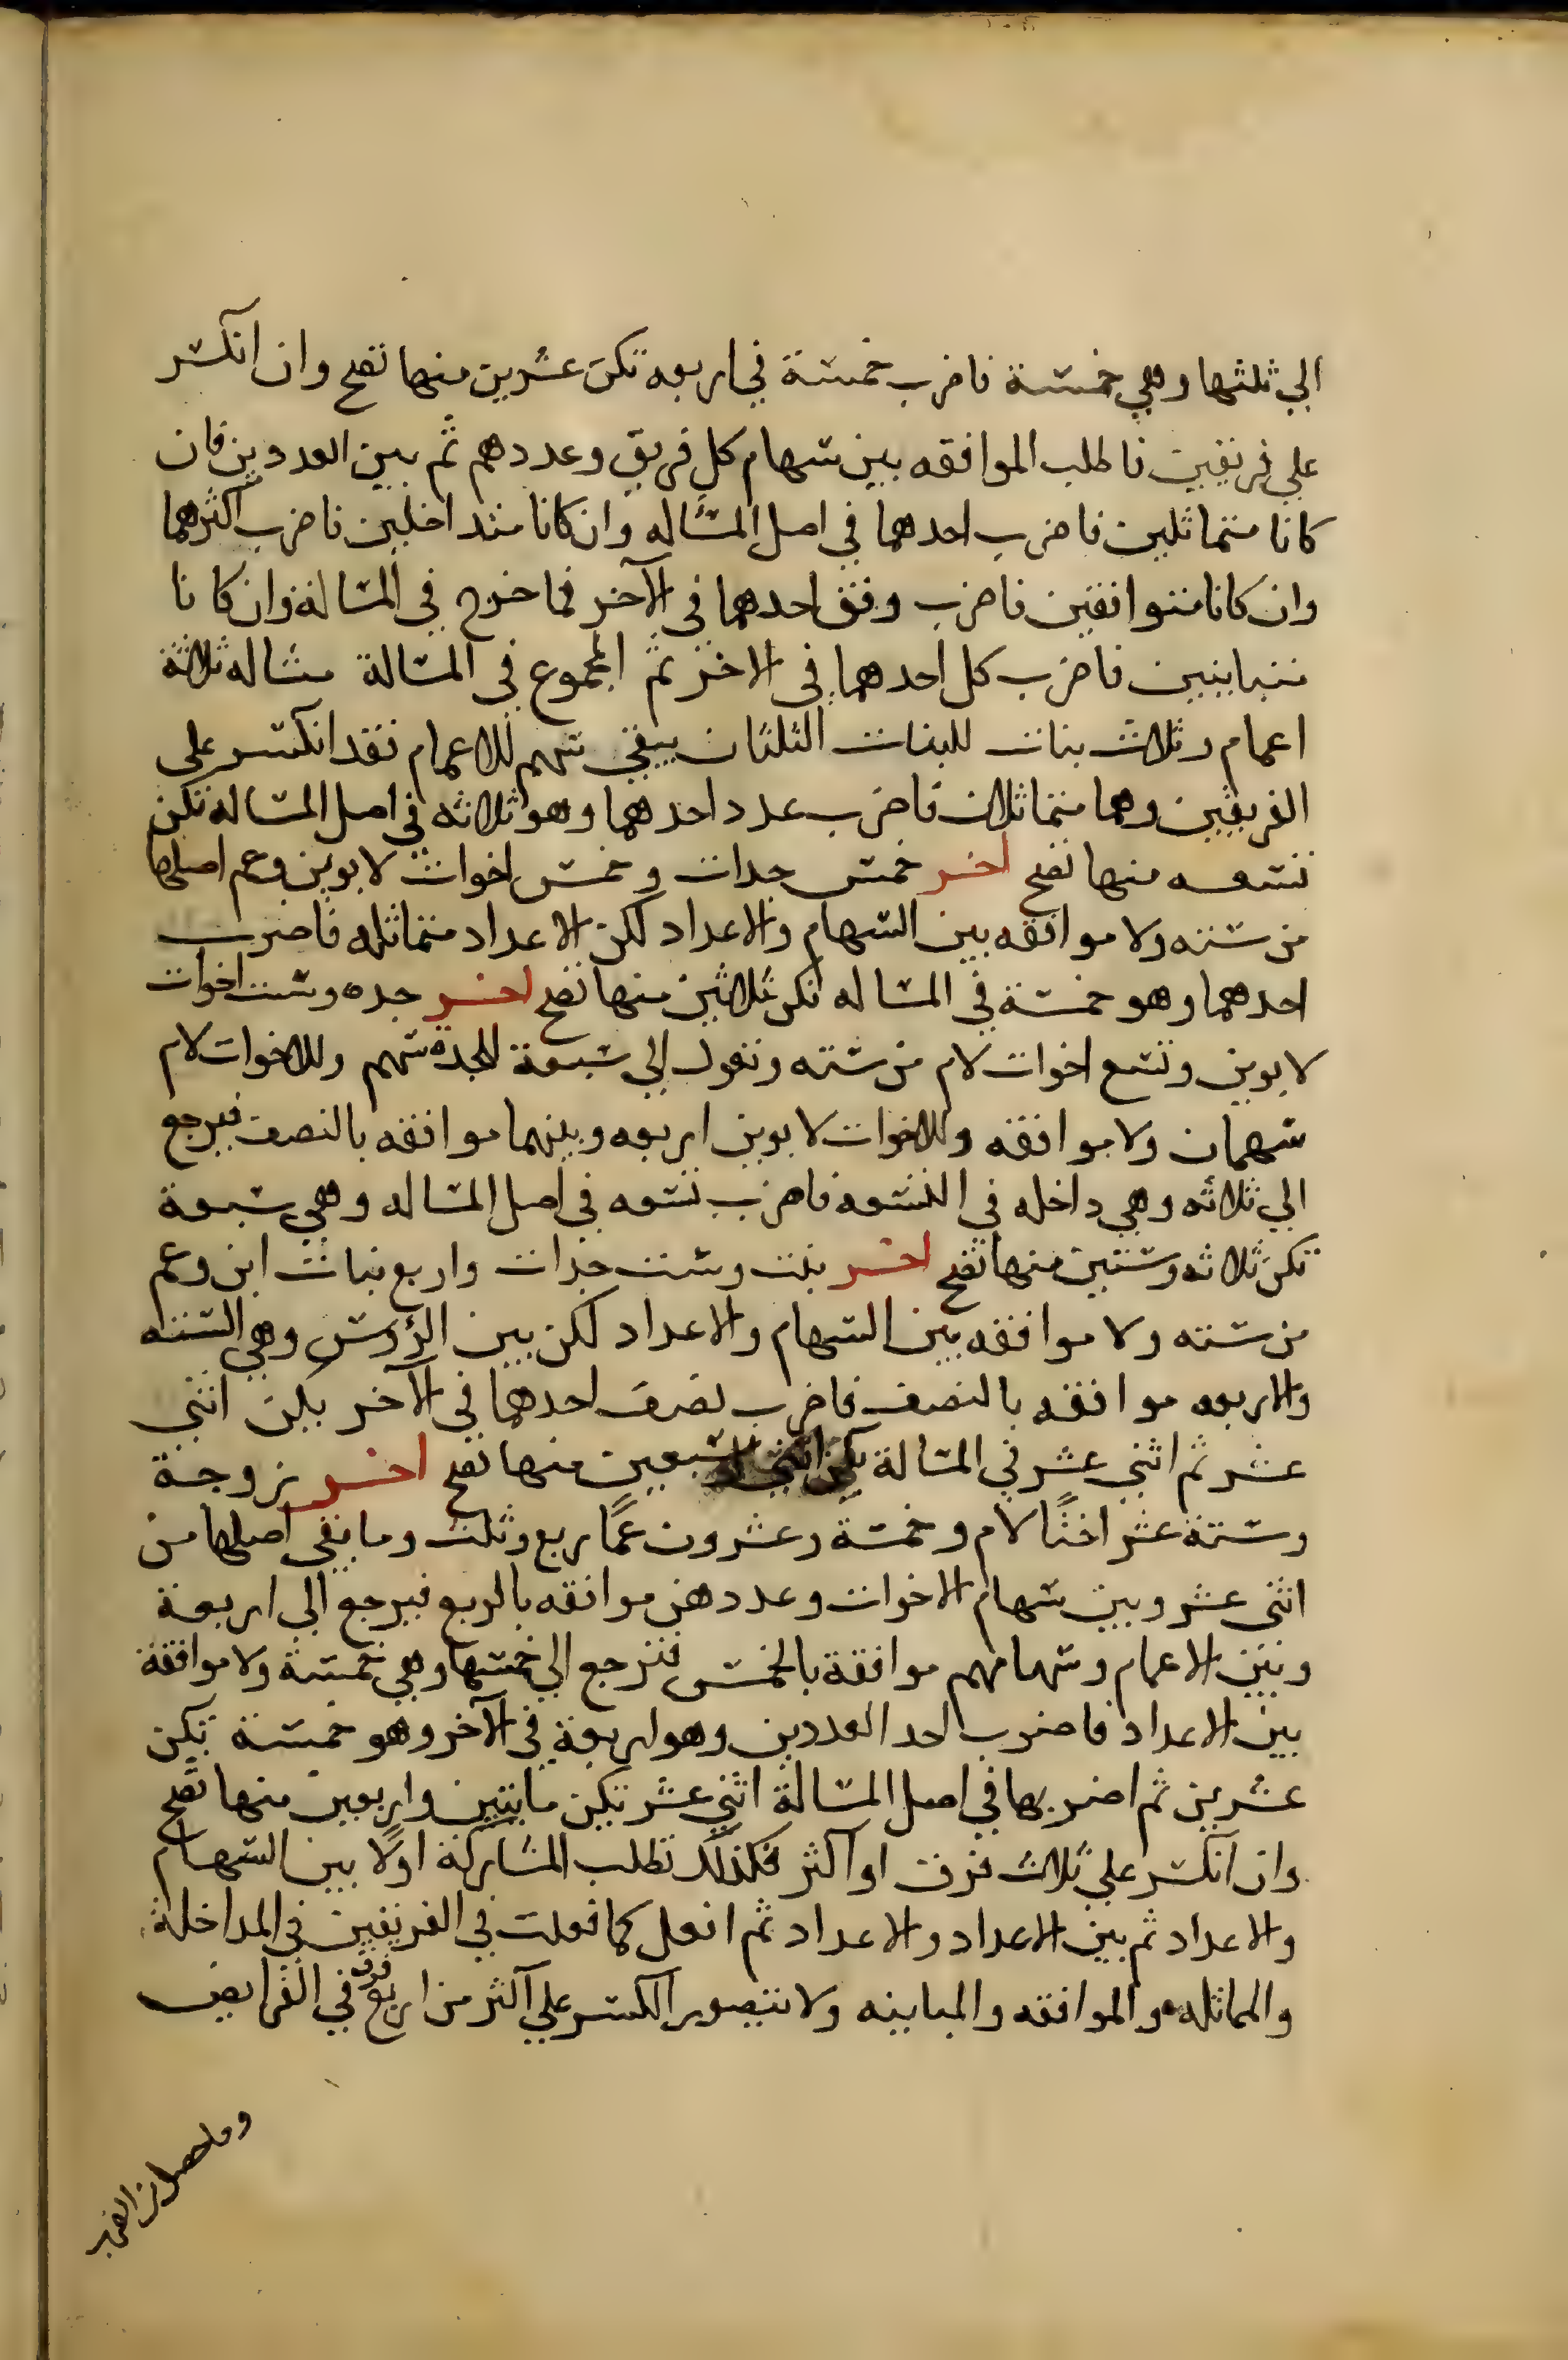 الي ثلثها وهي خمسة فاضرب خمسة في اربعه تكن عشرين منها تصح وان انكسر
علي فريقين فاطلب الموافقه بين سهام كل فريق وعددهم ثم بين العددين فان
كانا متماثلين فاضرب احدهما في اصل المسأله وان كانا متداخلين فاضرب اكثرهما
وان كانا متوافقين فاضرب وفق احدهما في الآخر فما خرج في المسالة وان كانا
متباينين فاضرب كل احدهما في الاخر ثم المجموع في المسالة مثاله ثلاثة
اعمام وثلاث بنات للبنات الثلثان يبقي سهم للاعمام فقد انكسر علي
الفريقين وهما متماثلان فاضرب عدد احدهما وهو ثلاثه في اصل المساله تكن
تسعه منها تصح اخر خمس جدات وخمس اخوات لابوين وعم اصلها
من سته ولا موافقه بين السهام والاعداد لكن الاعداد متماثله فاضرب
احدهما وهو خمسة في المساله تكن ثلاثين منها تصح اخر جده وست اخوات
لابوين وتسع اخوات لام من سته وتعول الي سبعة للجدة سهم وللاخوات لام
سهمان ولا موافقه وللاخوات لابوين اربعه وبينهما موافقه بالنصف فيرجع
الي ثلاثه وهي داخله في التسعه فاضرب تسعه في اصل المساله وهي سبعة
تكن ثلاثه وستين منها تصح اخر بنت وست جدات واربع بنات ابن وعم
من سته ولا موافقه بين السهام والاعداد لكن بين الرؤوس وهي السته
والاربعه موافقه بالنصف فاضرب نصف احدهما في الآخر يكن اثني
عشر ثم اثني عشر في المسالة يكن اثنين وسبعين منها تصح اخر زوجة
وستة عشر اختًا لام وخمسة وعشرون عمًا ربع وثلث وما بقي اصلها من
اثني عشر وبين سهام الاخوات وعددهن موافقه بالربع فيرجع الي اربعة
وبين الاعمام وسهامهم موافقة بالخمس فترجع الي خمسها وهي خمسة ولا موافقة
بين الاعداد فاضرب احد العددين وهو اربعة في الآخر وهو خمسة تكن
عشرين ثم اضربها في اصل المسالة اثني عشر تكن مايتين واربعين منها تصح
وان انكسر علي ثلاث فرق او اكثر فكذلك تطلب المشاركة اولًا بين السهام
والاعداد ثم بين الاعداد والاعداد ثم افعل كما فعلت في الفريقين في المداخلة
والمماثله والموافقه والمباينه ولا يتصور الكسر علي اكثر من اربع فرق في الفرايض
وما حصل من الضرب